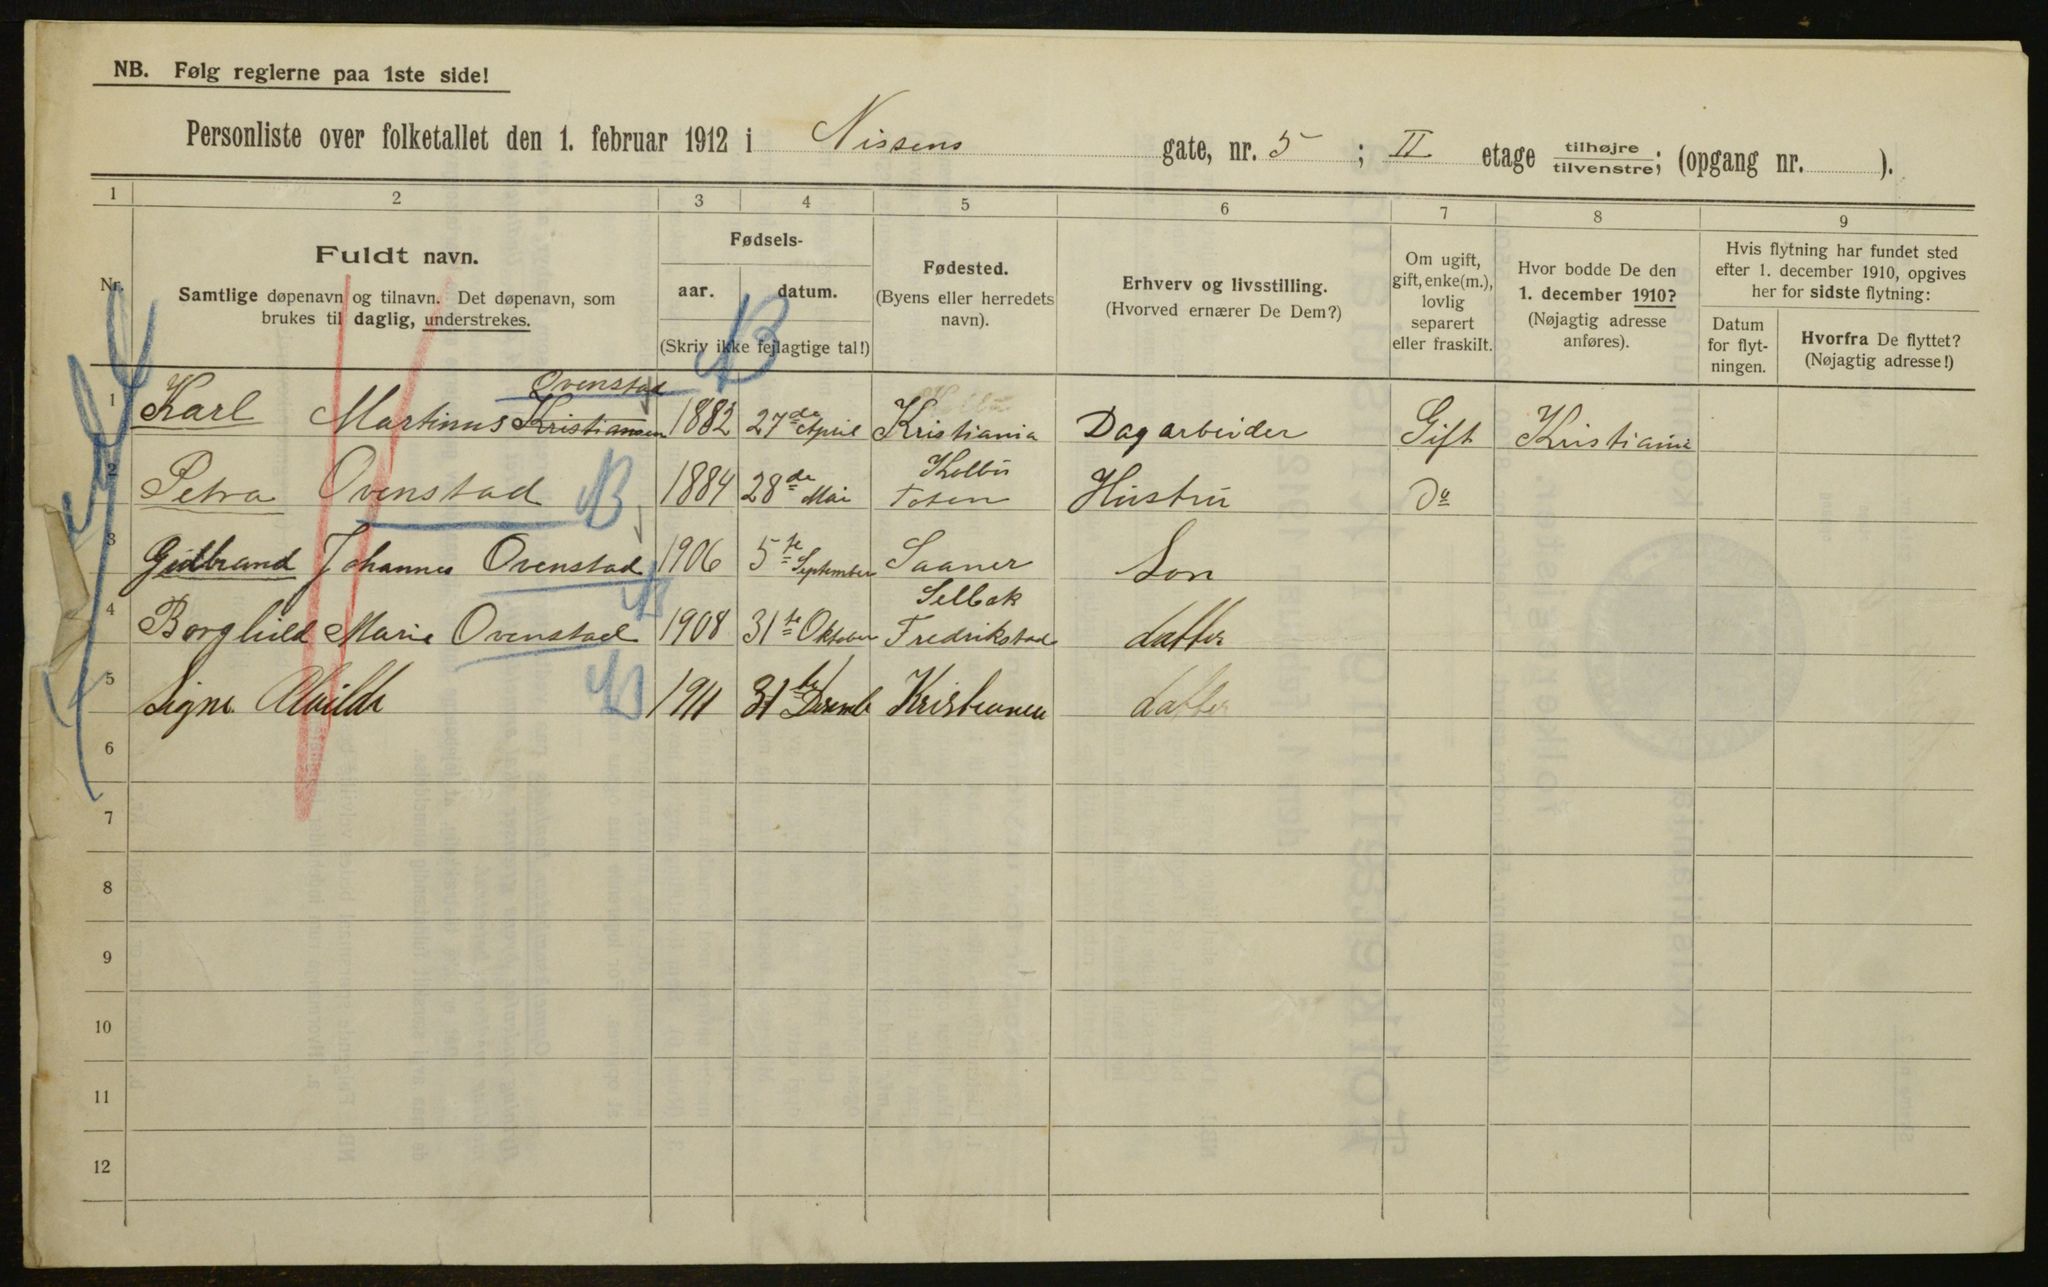 NB. Følg reglerne paa 1ste side!
Personliste over folketallet den 1. februar 1912 i Nissens gate, nr. 5 ; II etage tilhøjre/tilvenstre; (opgang nr. ).
1 2 3 4 5 6 7 8 9
Nr.
Fuldt navn.
Samtlige døpenavn og tilnavn. Det døpenavn, som
brukes til daglig, understrekes.
Fødsels-
aar. datum.
(Skriv ikke fejlagtige tal!)
Fødested.
(Byens eller herredets
navn).
Erhverv og livsstilling.
(Hvorved ernærer De Dem?)
Om ugift,
gift, enke(m.),
lovlig
separert
eller fraskilt.
Hvor bodde De den
1. december 1910?
(Nøjagtig adresse
anføres).
Hvis flytning har fundet sted
efter 1. december 1910, opgives
her for sidste flytning:
Datum
for flyt-
ningen.
Hvorfra De flyttet?
(Nøjagtig adresse!)
Ovenstad
1 Karl Martinus Kristiansen 1882 27de April Kristiania Dagarbeider Gift Kristiania
Kolbu
2 Petra Ovenstad 1884 28de Mai Toten Hustru Do
3 Gudbrand Johannes Ovenstad 1906 5te September Saaner Son
Selbak
4 Borghild Marie Ovenstad 1908 31te Oktober Fredrikstad datter
5 Signe Alvilde 1911 31te Desemb Kristiania datter
6
7
8
9
10
11
12